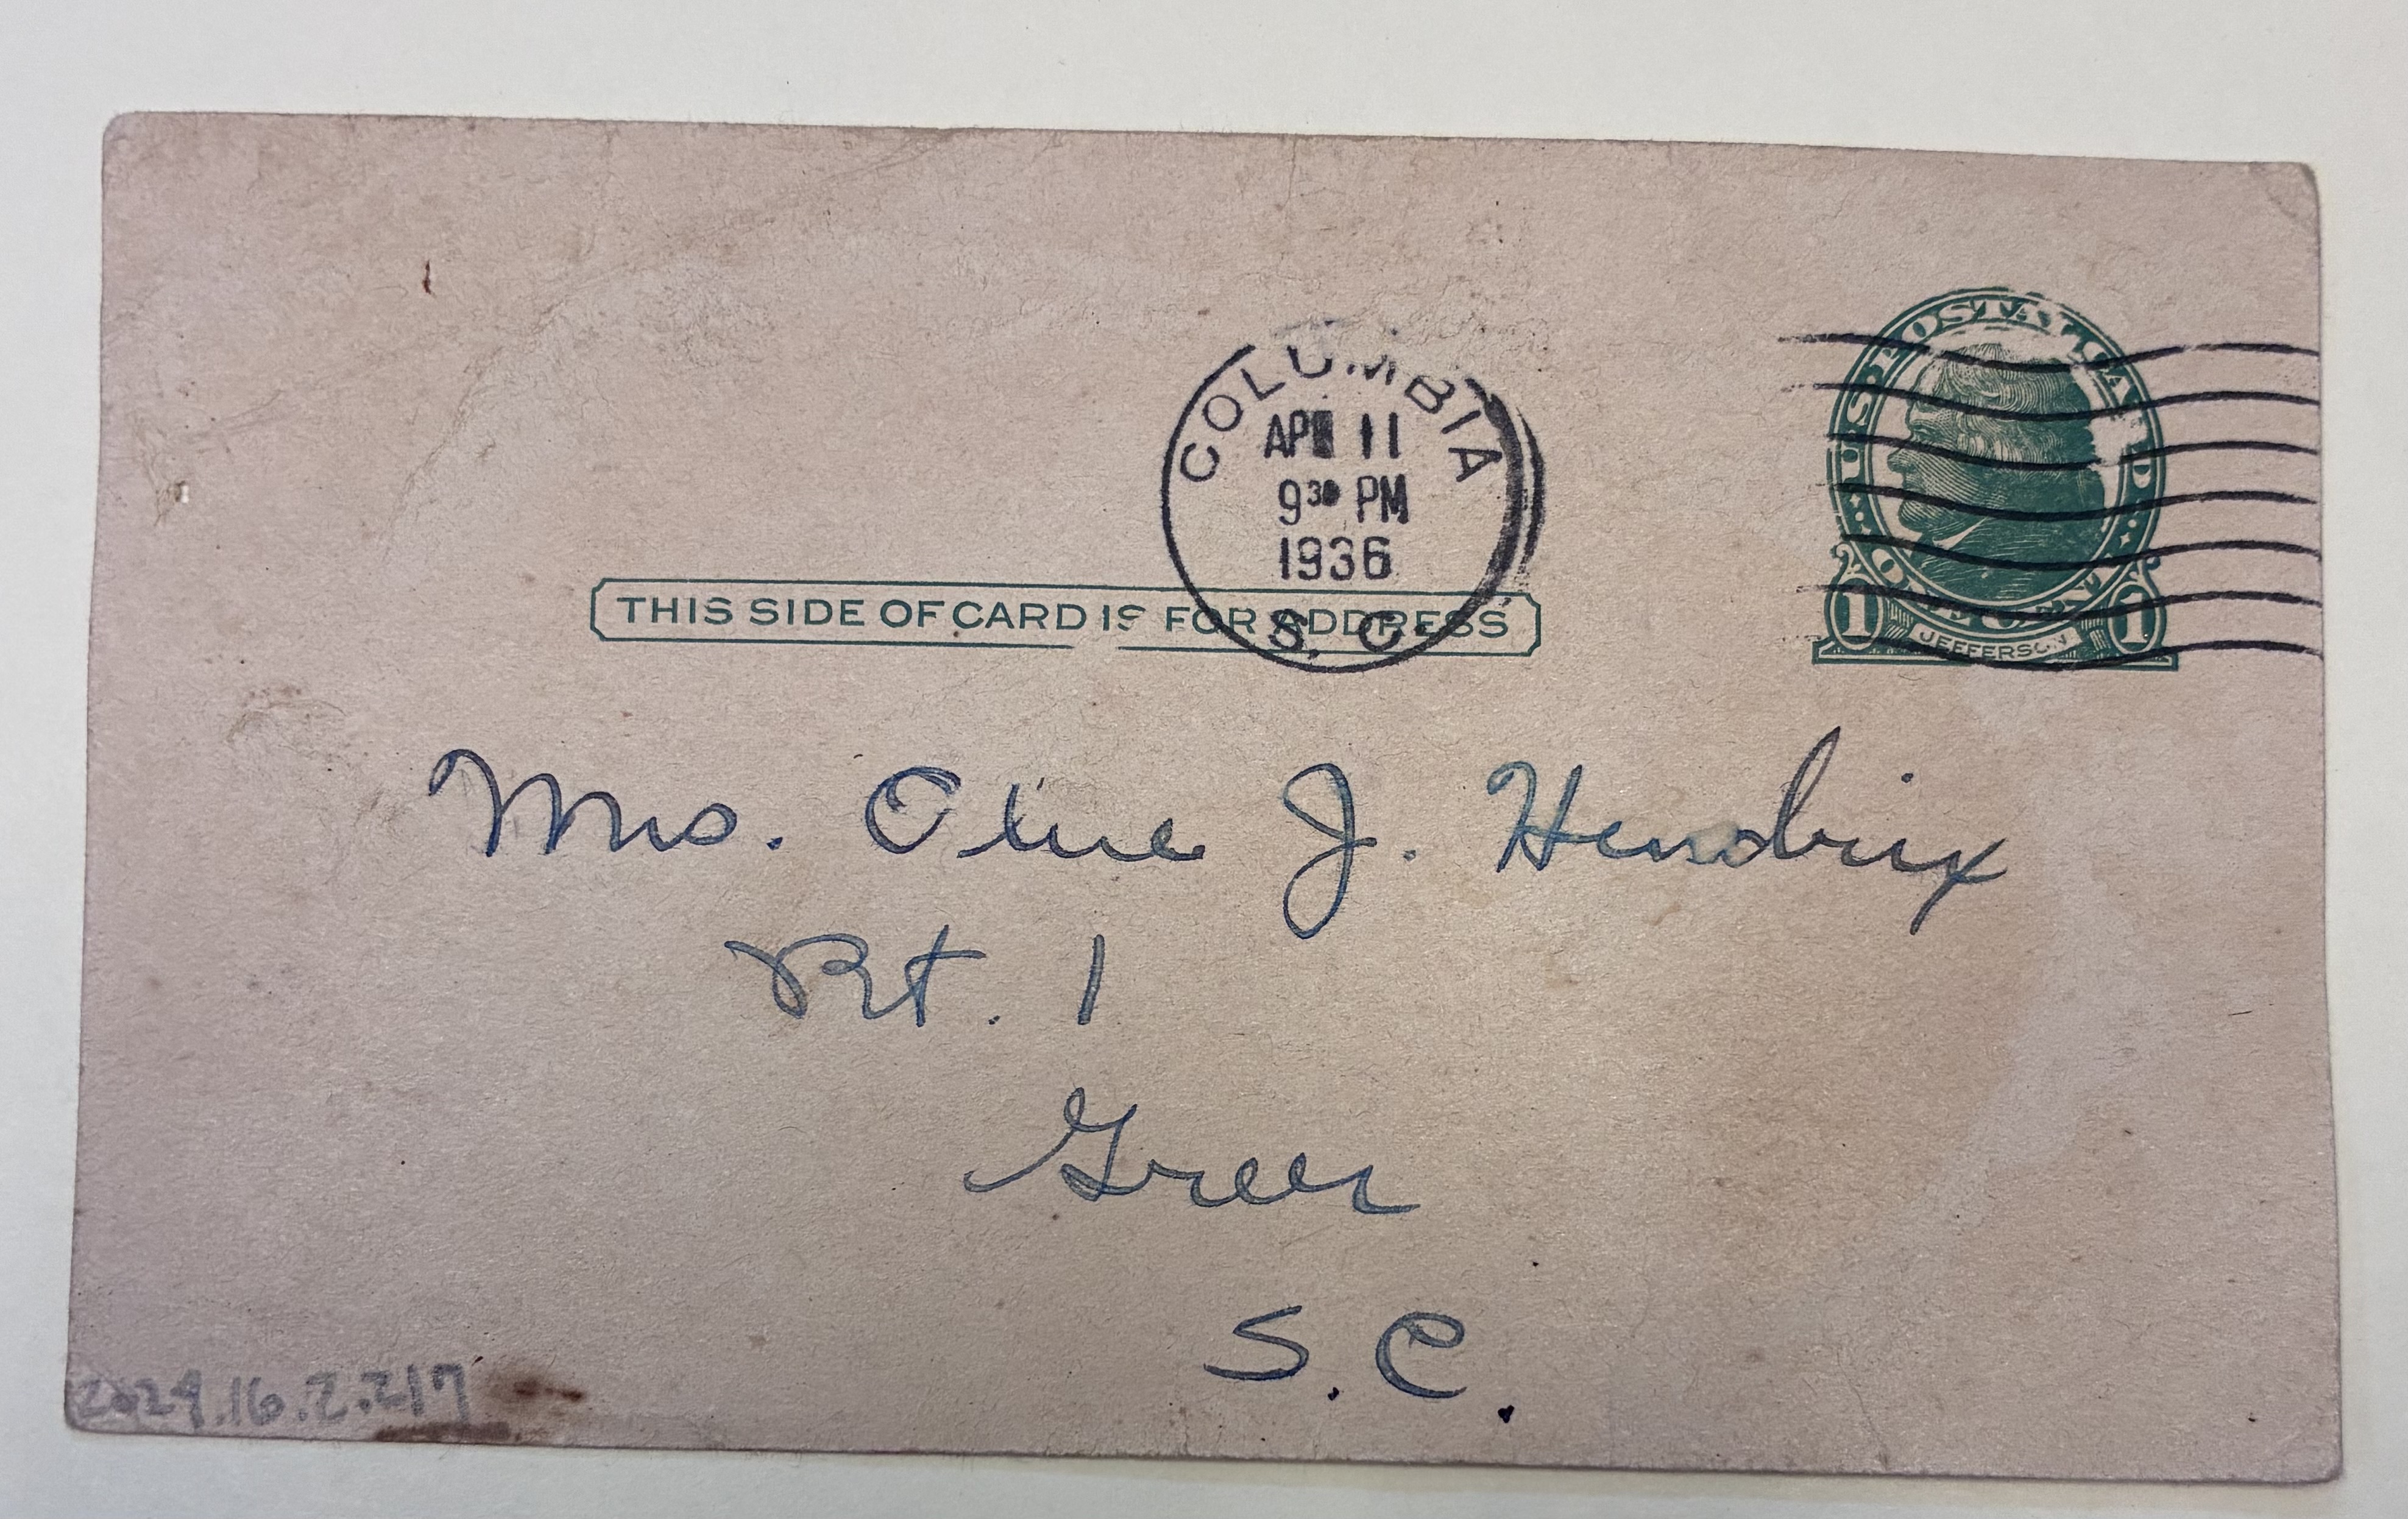 U.S. POSTAL CARD
COLUMBIA
APR 11
9 30 PM
1936
S. C.
THIS SIDE OF CARD IS FOR ADDRESS
ONE CENT
1 JEFFERSON 1
Mrs. Olive J. Hendrix
Rt. 1
Greer
S. C.
2024.16.2.217